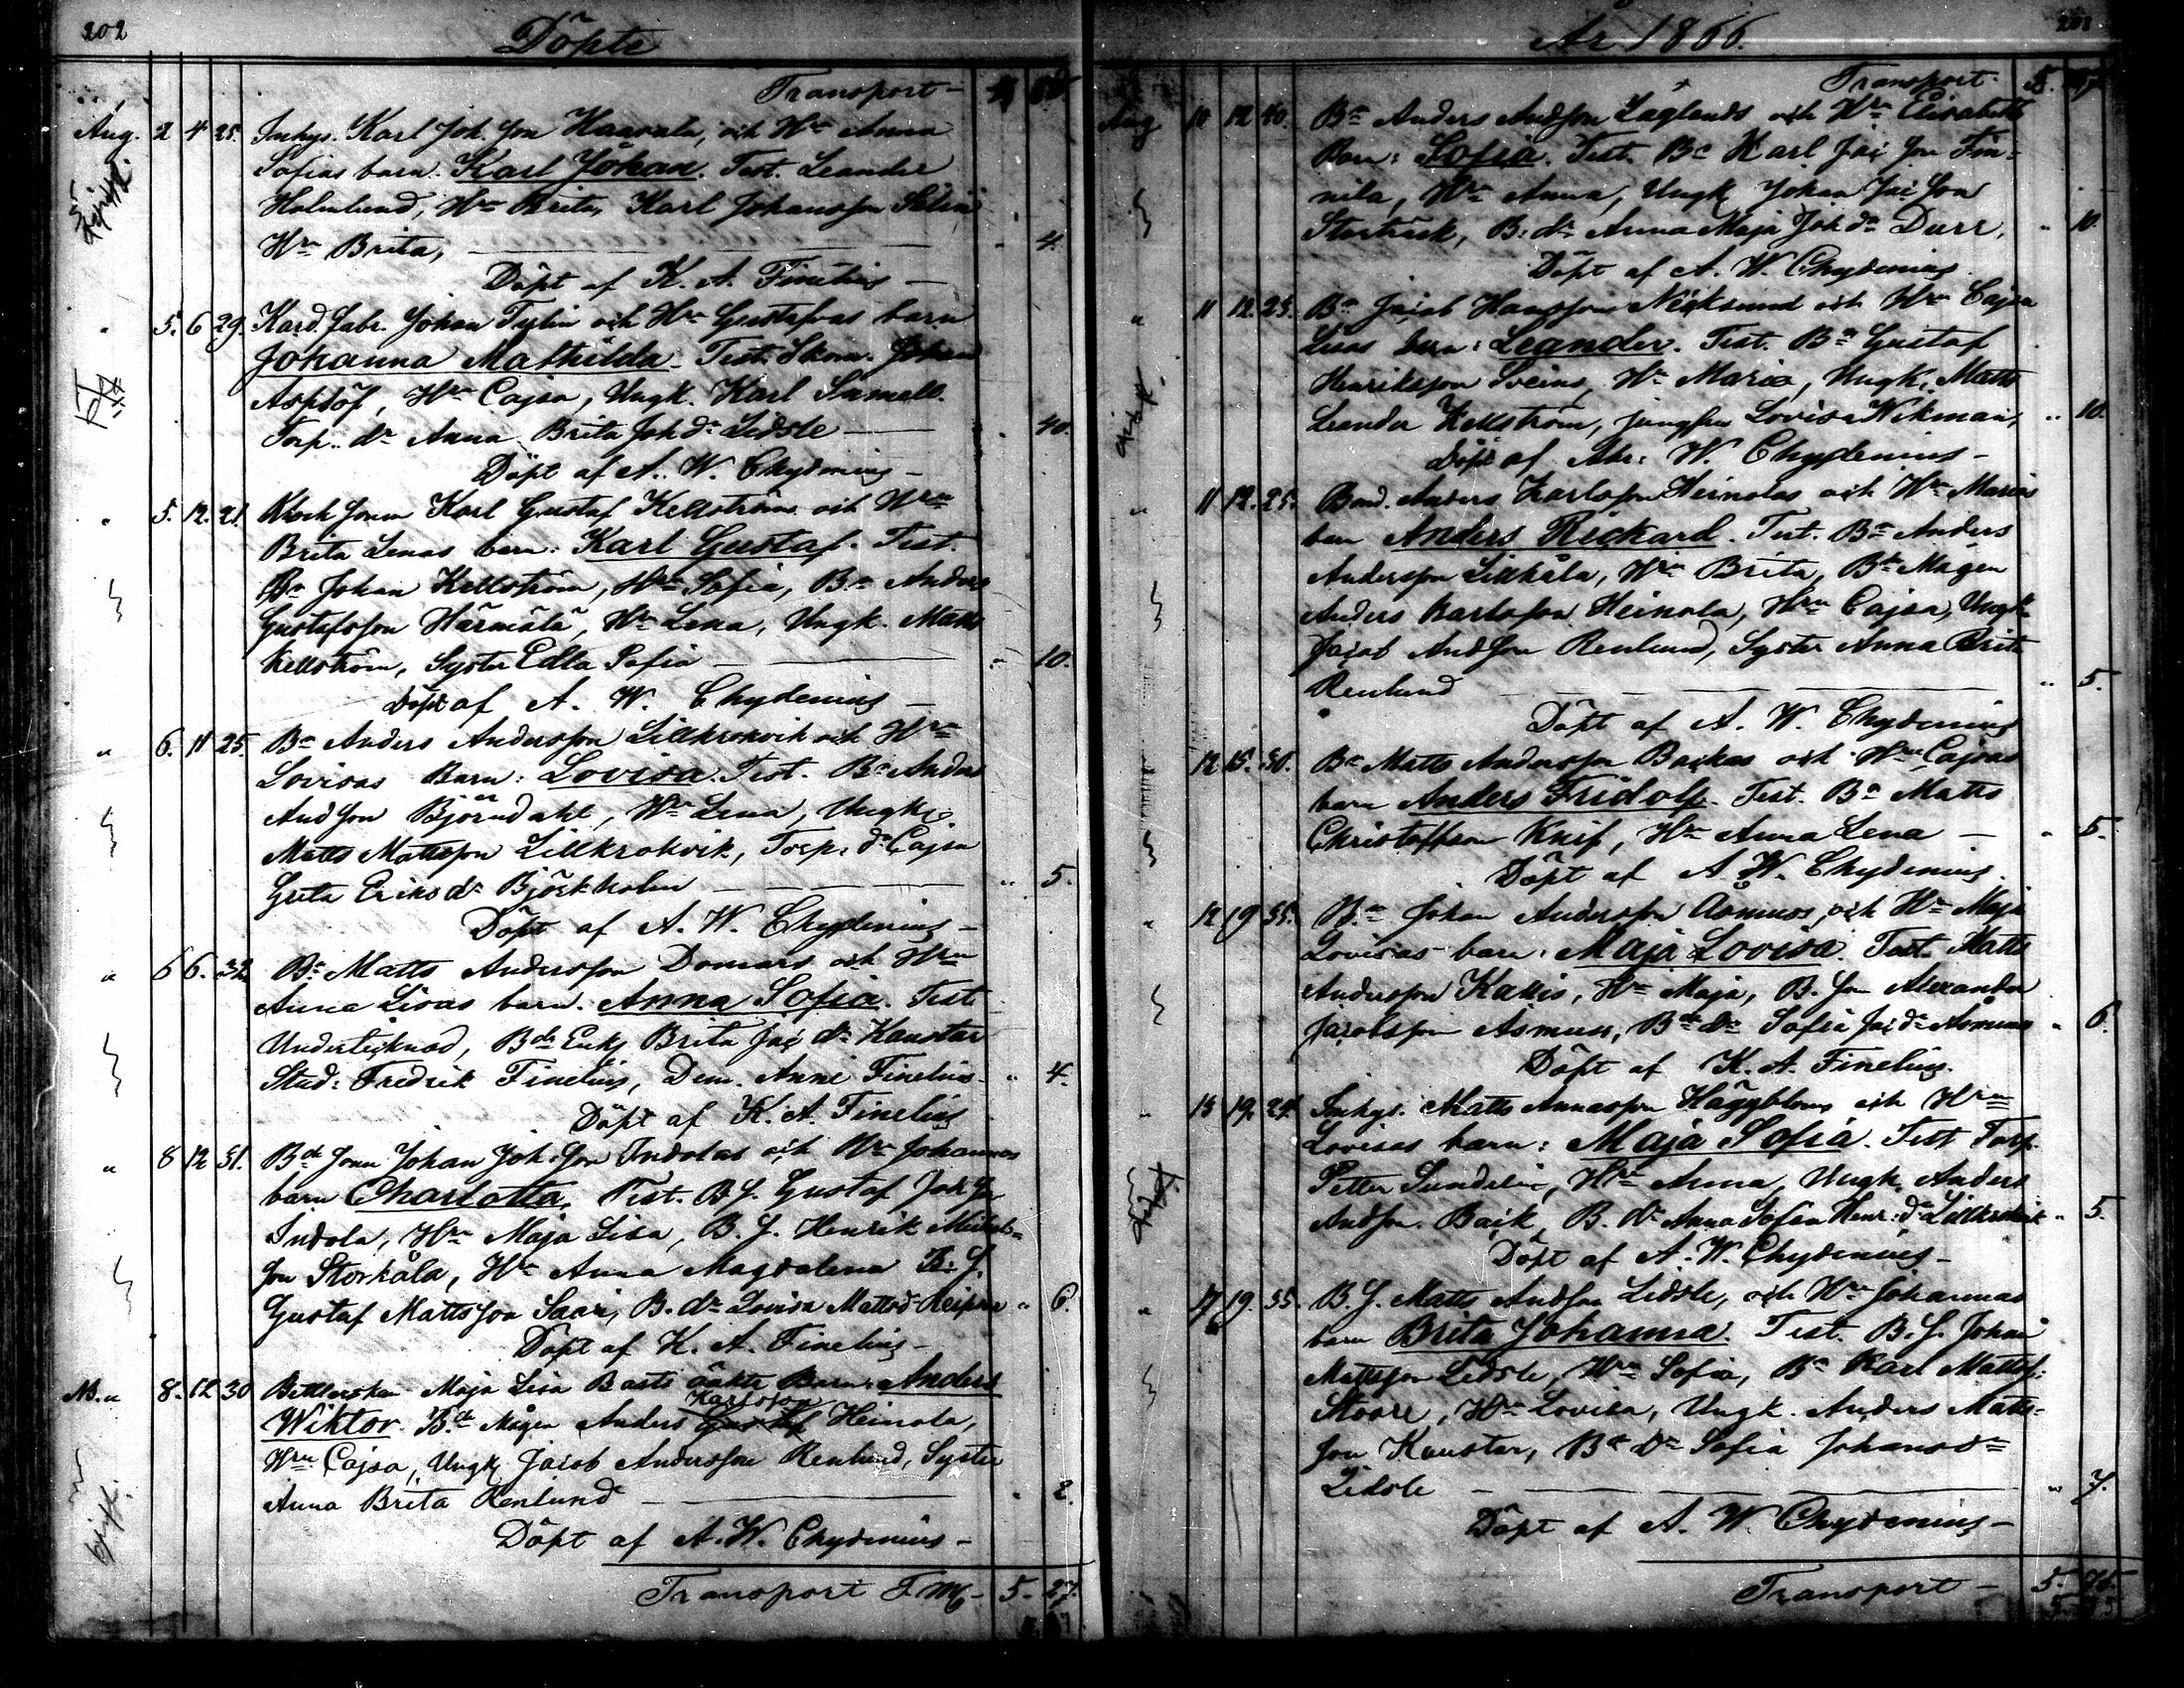 202
Döpte
Transport
Aug. 2 4 25. Inhys. Karl Joh. Son Haavala, och Hru Anna
Sofias barn. Karl Johan. Test. Leander
Holmlund, Hru Brita, Karl Johansson
Hru Brita, 4.
Döpt af K. A. Finelius
" 5. 6 29. Kard. fabr. Johan och Hru Gustafvas barn
Johanna Mathilda. Test. Skom. Johan
Asplöf, Hru Cajsa, Ungk. Karl
Torp. dr Anna Brita Joh dr Lidsle 40.
Döpt af A. W. Chydenius
" 5. 12. 21. Karl Gustaf Kellström och Hru
Brita Lenas barn: Karl Gustaf. Test.
Bn Johan Kellström, Hru Sofia, Bn Anders
Gustafsson Härmälä, Hru Lena, Ungk. Matts
Kellström, Syster Edla Sofia 10.
Döpt af A. W. Chydenius
" 6. 11 25. Bn Anders Andersson Lillkrokvik och Hru
Lovisas Barn: Lovisa. Test. Bn Anders
And Son Björndahl, Hru Lena, Ungk.
Matts Mattsson Lillkrokvik, Torp. dr Cajsa
Greta Eriks dr Björkholm " 5.
Döpt af A. W. Chydenius
" 6 6. 32. Bn Matts Andersson Domars och Hru
Anna Lisas barn. Anna Sofia. Test.
Undertecknad, Bde Enk. Brita Jac dr Kaustar
Stud: Fredrik Finelius, Dem. Anni Finelius " 4.
Döpt af K. A. Finelius
" 8 12 31. Bde Sonen Johan Joh. Son Indolas och Hru Johannas
barn Charlotta. Test. B. S. Gustaf Joh Son
Indola, Hru Maja Lisa, B. S. Henrik
Son Storkåla, Hru Anna Magdalena B. S.
Gustaf Matts Son Saari, B. dr Lovisa Matts d " 6.
Döpt af K. A. Finelius
NB. " 8. 12 30 Maja Lisa Basts oäkta Barn: Anders
Karlsson
Wiktor. Bde Mågen Anders Heinola,
Hru Cajsa, Ungk. Jacob Andersson Renlund, Syster
Anna Brita Renlund " 2.
Döpt af A. W. Chydenius
Transport F. M. 5. 27.
År 1866.
Transport 5.
Aug 10 12 40. Bn Anders Andson Laglands och Hru Elisabeth
Barn: Sofia. Test. Bn Karl Jac Son Fin-
nila, Hru Anna, Ungk Johan Jac Son
Storträsk, B. dr Anna Maja Joh dr Durr, " 10.
Döpt af A. W. Chydenius.
" 11 12. 25. Bn Jacob Hansson Nicksund och Hru Cajsa
Lisas barn: Leander. Test. Bn Gustaf
Henriksson Sveins, Hru Maria, Ungk. Matts
Leander Kellström, jungfru Lovisa Wikman, " 10.
Döpt af Abr: W. Chydenius
" 11 12. 25. Bond. Anders Karlsson Heinolas och Hru Marias
barn Anders Rickard. Test. Bn Anders
Andersson Lillkåla, Hru Brita, Bde Mågen
Anders Karlsson Heinola, Hru Cajsa, Ungk
Jacob And Son Renlund, Syster Anna Brita
Renlund " 5.
Döpt af A. W. Chydenius
12 15. 30. Bn Matts Andersson Backas och Hru Cajsas
barn Anders Fridolf. Test. Bn Matts
Christoffsson Knif, Hru Anna Lena " 5.
Döpt af A W. Chydenius.
" 12 19 35. Bn Johan Andersson Åsmuss och Hru Maja
Lovisas barn: Maja Lovisa. Test. Matts
Andersson Kallis, Hru Maja, B. Son Alexander
Jacobsson Åsmuss, Bde dr Sofia Jac dr Åsmuss " 6.
Döpt af K. A. Finelius.
" 13 19. 24. Inhys. Matts Annasson Häggblom och Hru
Lovisas barn: Maja Sofia. Test Torp
Petter Sundelin, Hru Anna, Ungk. Anders
Andson. Baik, B. dr Anna Sofia Henr. dr Lillkrokvik " 5.
Döpt af A. W. Chydenius
" 17 19. 35. B. S. Matts Andson Lidsle, och Hru Johannas
barn Brita Johanna. Test. B. S. Johan
Mattsson Lidsle, Hru Sofia, Bn Karl Mattss:
Stoore, Hru Lovisa, Ungk. Anders Matts-
son Kaustar, Bde dr Sofia Johans dr
Lidsle " 7.
Döpt af A. W. Chydenius
Transport 5. 75.